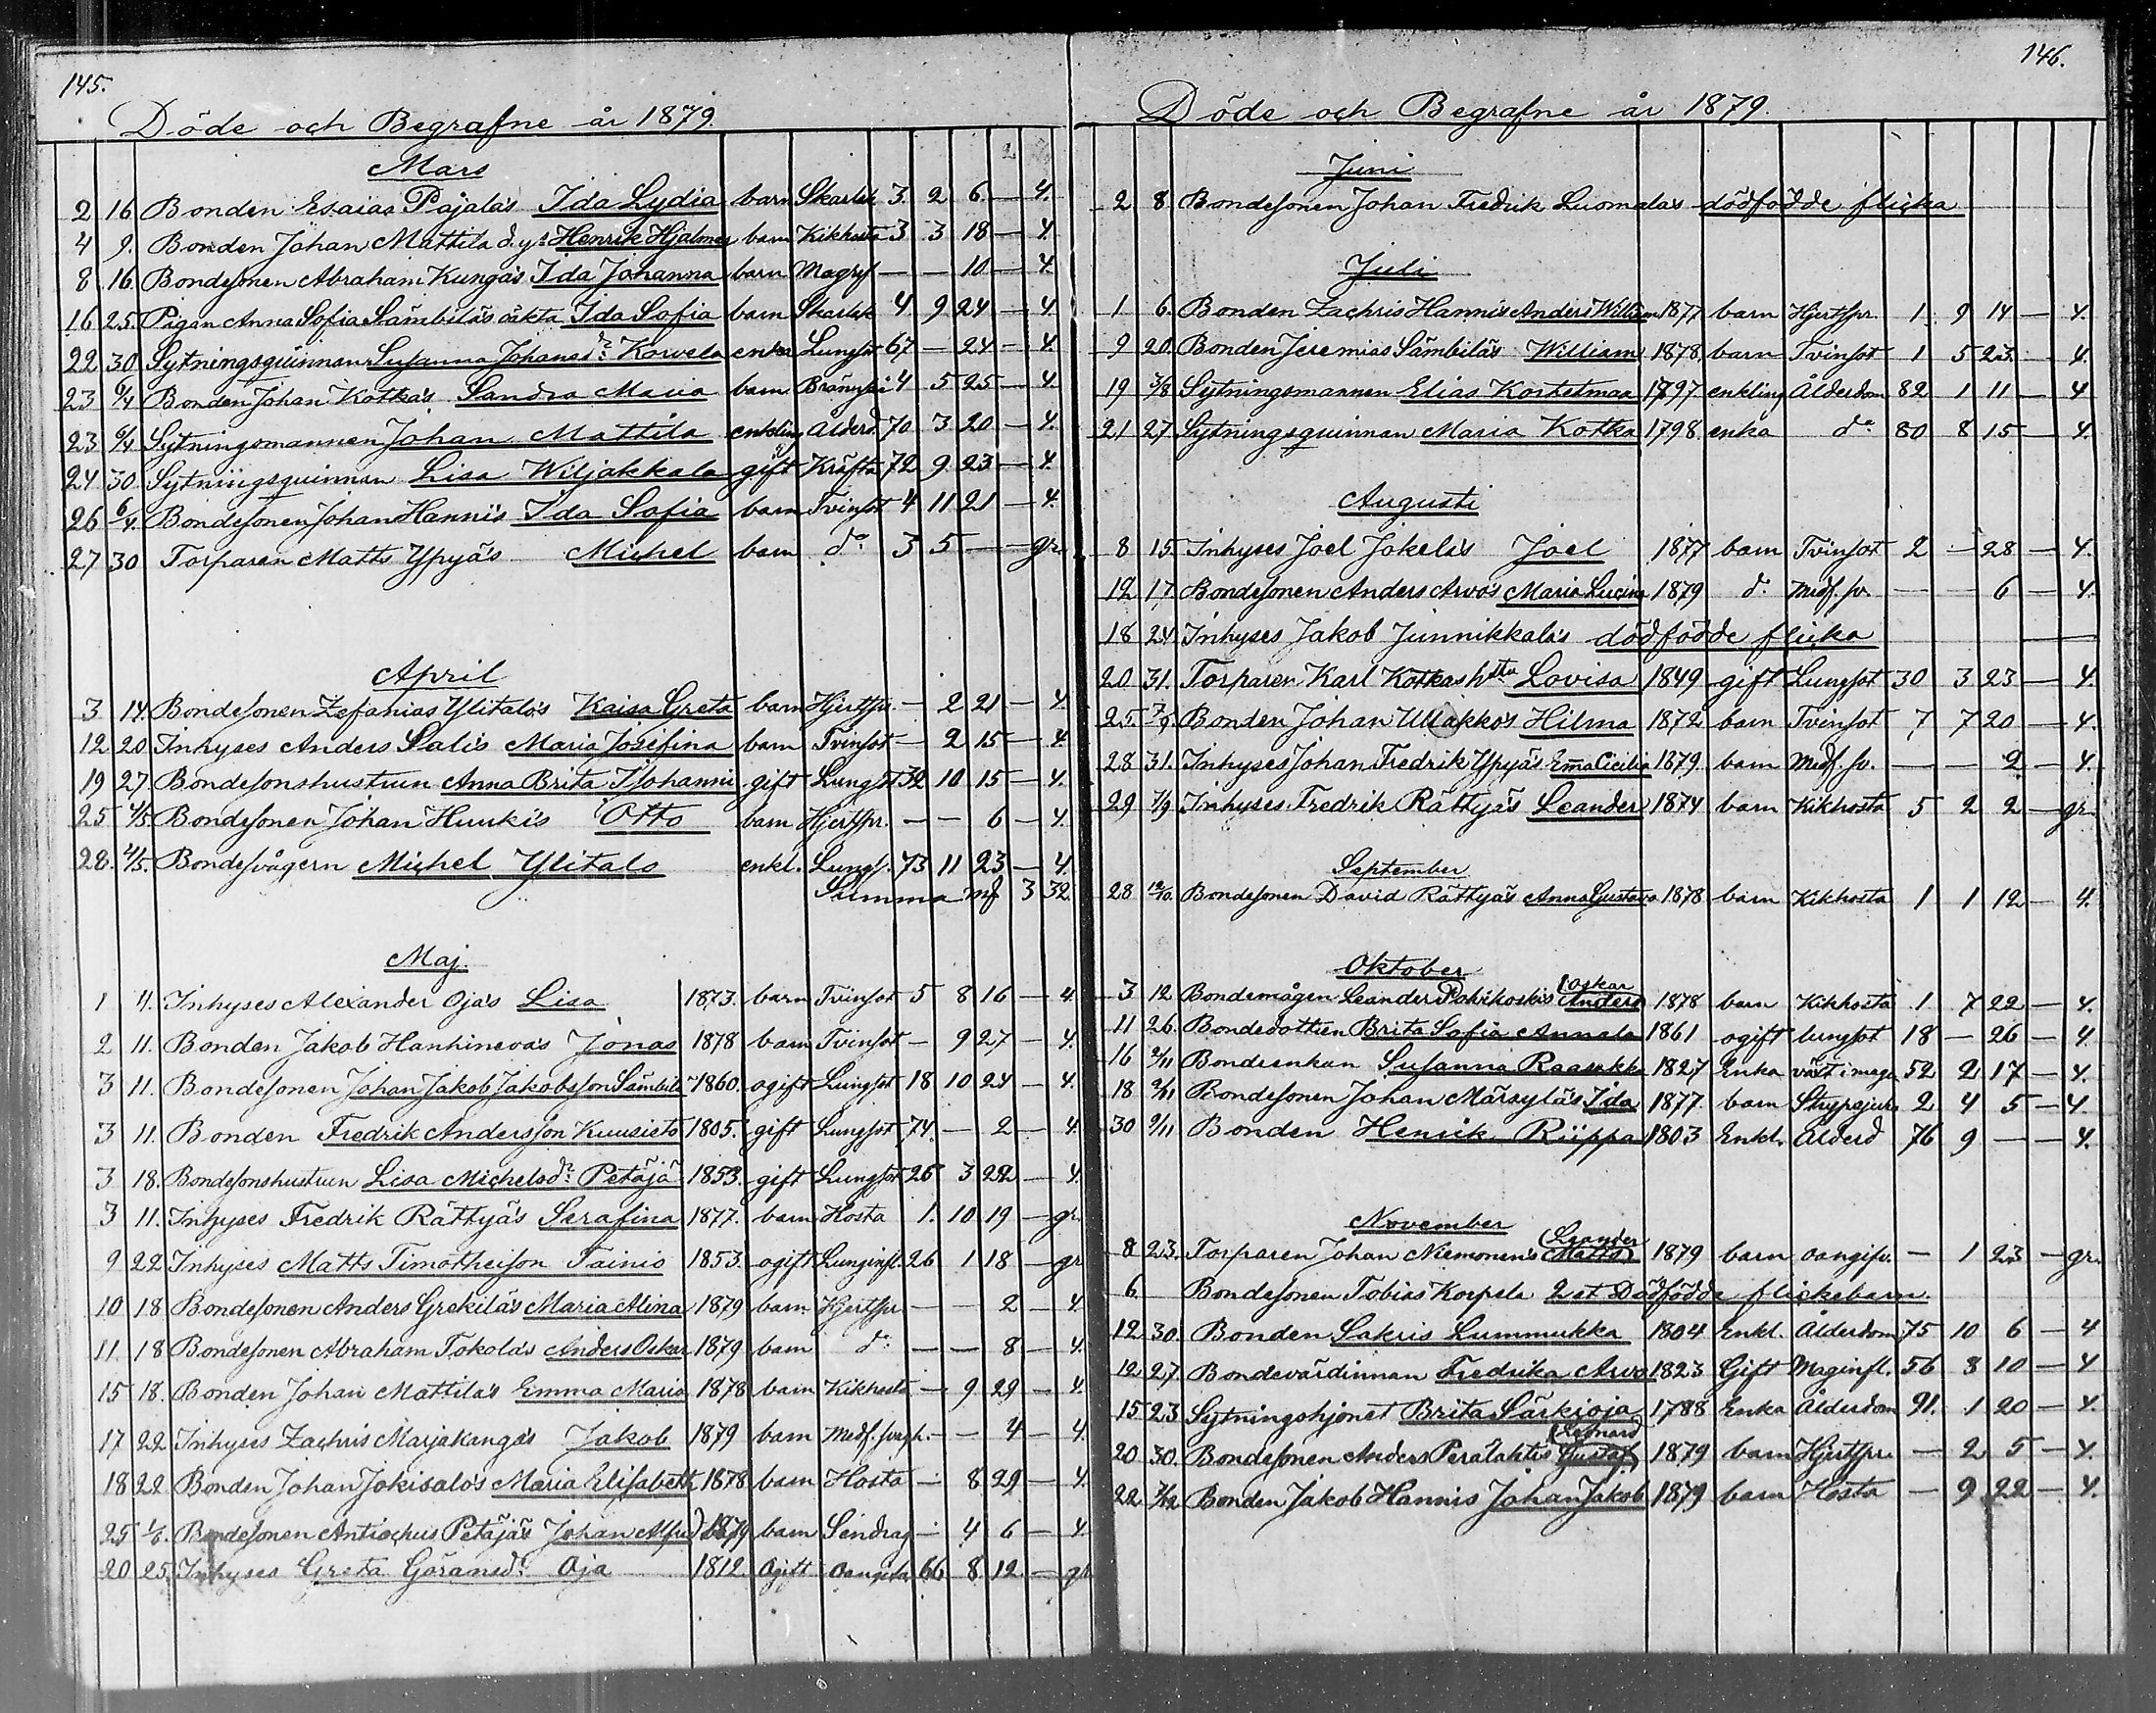 145.
Döde och Begrafne år 1879.
Mars
2 16 Bonden Esaias Pajala's Ida Lydia barn Skarlak 3 2 6 — 4.
4 9. Bonden Johan Mattila d.y:s Henrik Hjalmar barn Kikhosta 3 3 18 — 4.
8 16. Bondesonen Abraham Kunga's Ida Johanna barn Magref — — 10 — 4.
16 25. Pigan Anna Sofia Sämbilä's oäkta Ida Sofia barn Skarlak 4 9 24 — 4.
22 30 Sytningsquinnan Susanna Johansd:r Korvela enka Lungsot 67 — 24 — 4.
23 6/4 Bonden Johan Kotka's Sandra Maria barn 4 5 25 — 4.
23 6/4 Sytningsmannen Johan Mattila enkling Ålderd. 70 3 20 — 4.
24 30 Sytningsquinnan Lisa Wiljakkala gift Kräfta 72 9 23 — 4.
26 6/4. Bondesonen Johan Hanni's Ida Sofia barn Tvinsot 4 11 21 — 4.
27 30 Torparen Matts Ypyä's Michel barn d:o 3 5 — — gr.
April
3 14. Bondesonen Zefanias Ylitalo's Kaisa Greta barn Hjertspr. — 2 21 — 4.
12 20 Inhyses Anders Sali's Maria Josefina barn Tvinsot — 2 15 — 4.
19 27. Bondesonshustrun Anna Brita Isohanni gift Lungst 32 10 15 — 4.
25 4/5 Bondesonen Johan Huuki's Otto barn Hjertspr. — — 6 — 4.
28. 4/5. Bondesvågern Michel Ylitalo enkl. Lungs. 73 11 23 — 4.
Summa mf 3 32.
Maj.
1 4. Inhyses Alexander Oja's Lisa 1873. barn Tvinsot 5 8 16 — 4.
2 11. Bonden Jakob Hanhineva's Jonas 1878 barn Tvinsot — 9 27 — 4.
3 11. Bondesonen Johan Jakob Jakobsson Sämbilä 1860. ogift Lungsot 18 10 24 — 4.
3 11. Bonden Fredrik Andersson Kuusisto 1805. gift Lungsot 74. — 2 — 4.
3 18. Bondesonshustrun Lisa Michelsd:r Petäjä 1853. gift Lungsot 26 3 22 — 4.
3 11. Inhyses Fredrik Rättyä's Serafina 1877. barn Hosta 1. 10 19 — gr.
9 22 Inhyses Matts Timotheison Tainio 1853. ogift Lunginfl. 26 1 18 — gr
10 18 Bondesonen Anders Grekilä's Maria Alina 1879 barn Hjertspr — — 2 — 4.
11. 18 Bondesonen Abraham Tokola's Anders Oskar 1879 barn d:o — — 8 — 4.
15 18. Bonden Johan Mattila's Emma Maria 1878 barn Kikhosta — 9 29 — 4.
17 22 Inhyses Zachris Marjakanga's Jakob 1879 barn Medf. svagh. — — 4 — 4.
18 22 Bonden Johan Jokisalo's Maria Elisabeth 1878 barn Hosta — 8 29 — 4.
25 1/6. Bondesonen Antiochus Petäjä's Johan Alfred 1879 barn Sendrag — 4 6 — 4.
20 25. Inhyses Greta Göransd:r Oja 1812. Ogift Oangifva 66 8 12 — gr
146.
Döde och Begrafne år 1879.
Juni
2 8. Bondesonen Johan Fredrik Luomala's dödfödde flicka
Juli
1 6. Bonden Zachris Hanni's Anders William 1877 barn Hjertspr. 1. 9 14 — 4.
9 20. Bonden Jeremias Sämbilä's William 1878. barn Tvinsot 1 5 23. — 4.
19 3/8 Sytningsmannen Elias Korhetmaa 1797 enkling Ålderdom 82 1 11 — 4
21 27 Sytningsquinnan Maria Kotka 1798. enka d:o 80 8 15 — 4.
Augusti
8 15. Inhyses Joel Jokela's Joel 1877 barn Tvinsot 2 — 28 — 4.
12 17. Bondesonen Anders Arvo's Maria Lucina 1879 d:o Medf. sv. — — 6 — 4.
18 24. Inhyses Jakob Junnikkala's dödfödde flicka
20 31. Torparen Karl Kotkas h:stru Lovisa 1849 gift Lungsot 30 3 23 — 4.
25 7/9. Bonden Johan Ullakko's Hilma 1872 barn Tvinsot 7 7 20 — 4.
28 31. Inhyses Johan Fredrik Ypyä's Em̄a Cicilia 1879. barn Medf. sv. — — 2 — 4.
29 7/9 Inhyses Fredrik Rättyä's Leander 1874 barn Kikhosta 5 2 2 — gr.
September
28 12/10. Bondesonen David Rättyä's Anna Gustava 1878 barn Kikhosta 1 1 12 — 4.
Oktober
Oskar
3 12 Bondemågen Leander Pahikoski's Anders 1878 barn Kikhosta 1 7 22 — 4.
11 26. Bondedottren Brita Sofia Annala 1861 ogift lungsot 18 — 26 — 4.
16 2/11 Bondeenkan Susanna Raasakka 1827 Enka växt i mage 52 2 17 — 4.
18 2/11 Bondesonen Johan Märsylä's Ida 1877. barn Strypsjuka 2 4 5 — 4.
30 9/11 Bonden Henrik Riippa 1803 Enkl. Ålderd 76 9 — — 4.
November
Leander
8 23. Torparen Johan Niemonen's Matts 1879 barn oangifv. — 1 23 — gr.
6. Bondesonen Tobias Korpela 2 st Dödfödde flickebarn
12 30. Bonden Sakris Lummukka 1804 Enkl. Ålderdom 75 10 6 — 4
12 27. Bondevärdinnan Fredrika Arvo 1823 Gift Maginfl. 56 3 10 — 4
15 23 Sytningshjonet Brita Särkioja 1788 Enka Ålderdom 91. 1 20 — 4.
Leonard
20 30. Bondesonen Anders Peralahtis Gustaf 1879 barn Hjertspr. — 2 5 — 4.
22 7/12 Bonden Jakob Hannis Johan Jakob 1879 barn Hosta — 9 22 — 4.